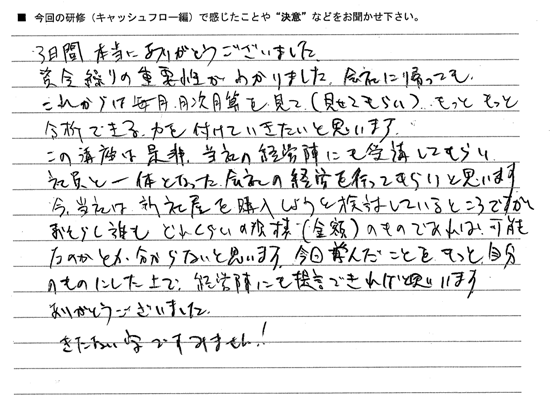 ■ 今回の研修（キャッシュフロー編）で感じたことや“決意”などをお聞かせ下さい。
3日間 本当にありがとうございました
資金繰りの重要性がわかりました。会社に帰っても、
これからは毎月、月次月算を見て、（見せてもらい）、もっと もっと
分析できる力を付けていきたいと思います。
この講座は是非、当社の経営陣にも受講してもらい、
社員と一体となった会社の経営を行ってもらいと思います
今、当社は新社屋を購入しようと検討しているところですが
おそらく誰も どれくらいの規模（金額）のものであれば可能
なのかとか分からないと思います。今日学んだことをもっと自分
のものにした上で、経営陣にも提言できればと思います
ありがとうございました。
きたない字ですみません！